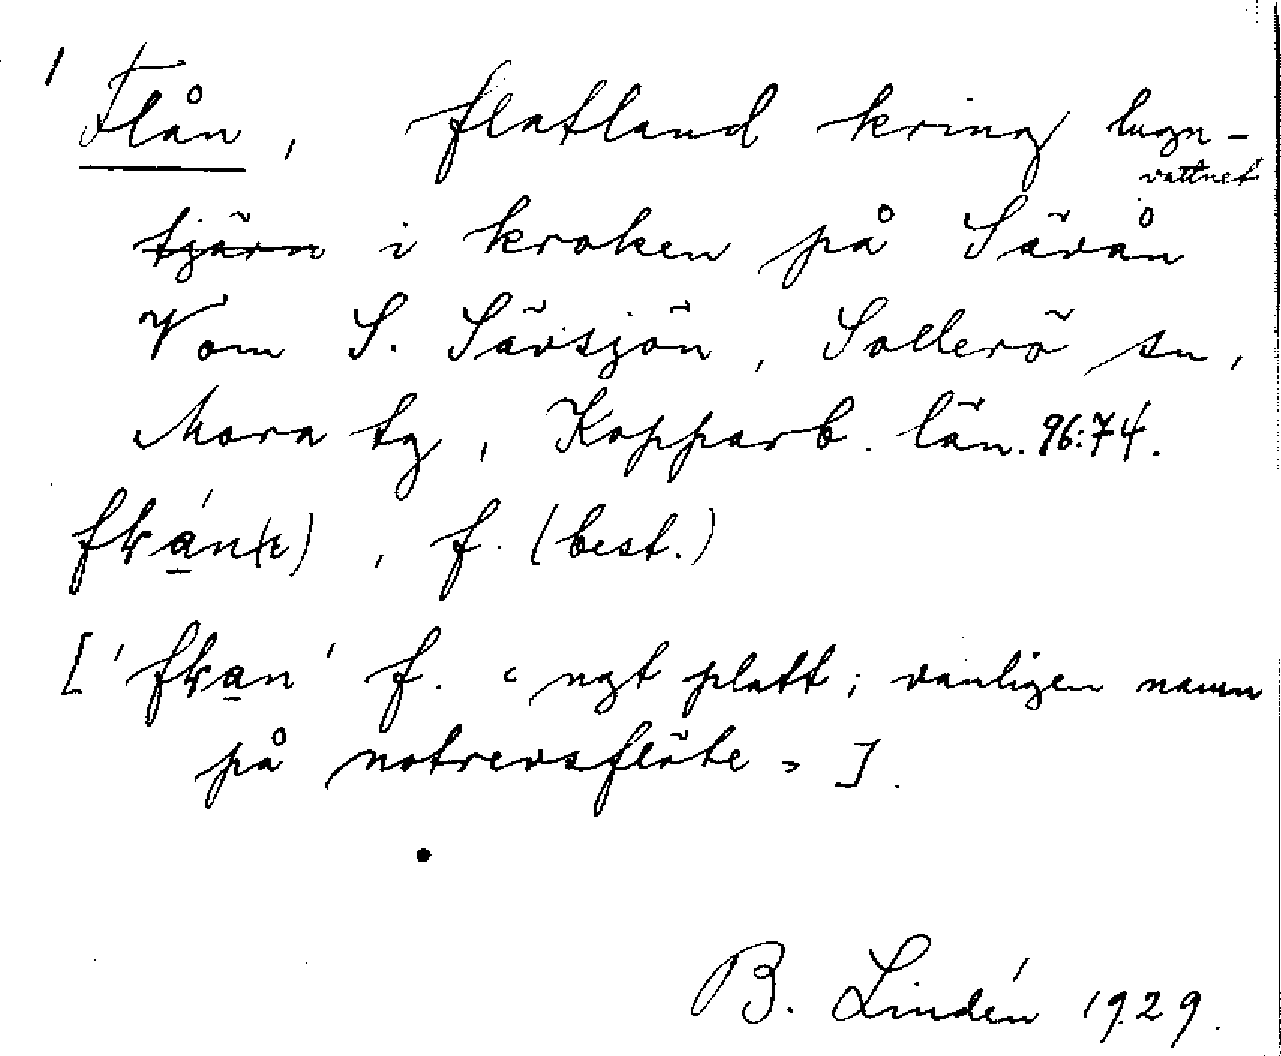 Flån, flatland kring lugn-
vattnet
tjärn i kroken på Sävån
V om S. Sävsjön, Sollerö sn,
Mora tg, Kopparb. län. 96:74.
f. (best.)
f. = ngt platt; vanligen namn
på notrevsflöte = ].
B. Lindén 1929.